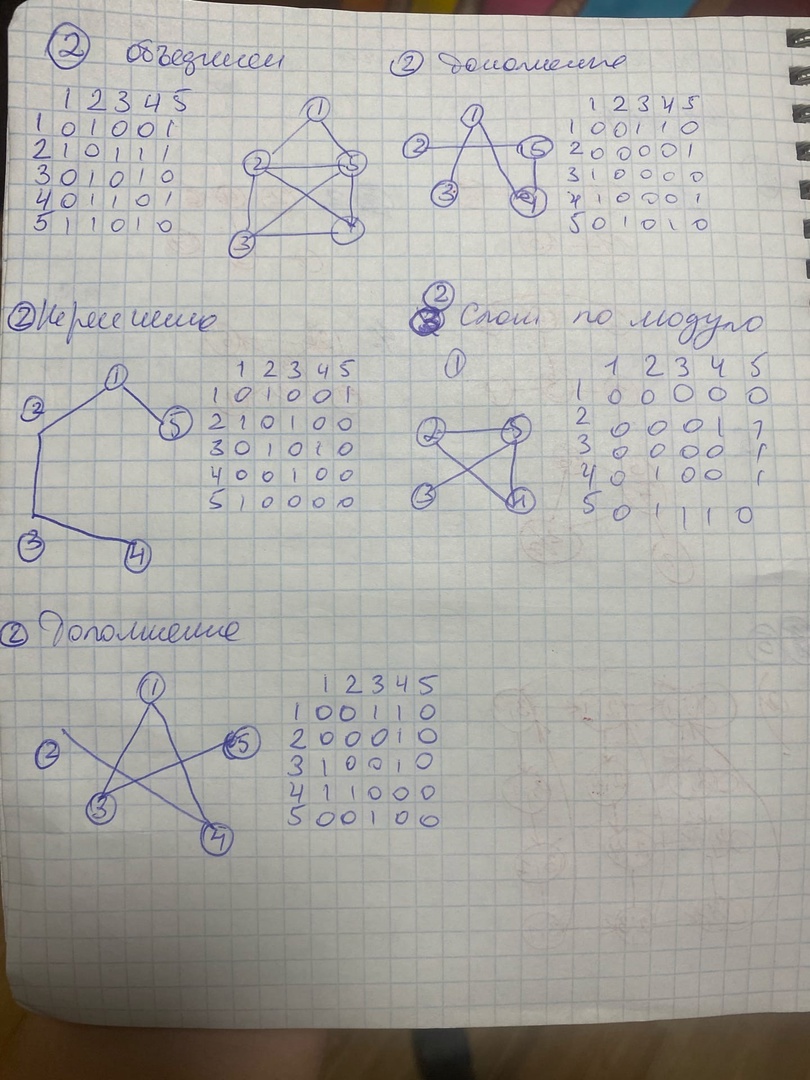 ② объединен
1 2 3 4 5
1 0 1 0 0 1
2 1 0 1 1 1
3 0 1 0 1 0
4 0 1 1 0 1
5 1 1 0 1 0
①
② ⑤
③
② дополнение
①
② ⑤
③ ④
1 2 3 4 5
1 0 0 1 1 0
2 0 0 0 0 1
3 1 0 0 0 0
4 1 0 0 0 1
5 0 1 0 1 0
②
①
② ⑤
③ ④
1 2 3 4 5
1 0 1 0 0 1
2 1 0 1 0 0
3 0 1 0 1 0
4 0 0 1 0 0
5 1 0 0 0 0
②
Слож по модулю
①
② ⑤
③ ④
1 2 3 4 5
1 0 0 0 0 0
2 0 0 0 1 1
3 0 0 0 0 1
4 0 1 0 0 1
5 0 1 1 1 0
② Дополнение
①
② ⑤
③ ④
1 2 3 4 5
1 0 0 1 1 0
2 0 0 0 1 0
3 1 0 0 1 0
4 1 1 0 0 0
5 0 0 1 0 0